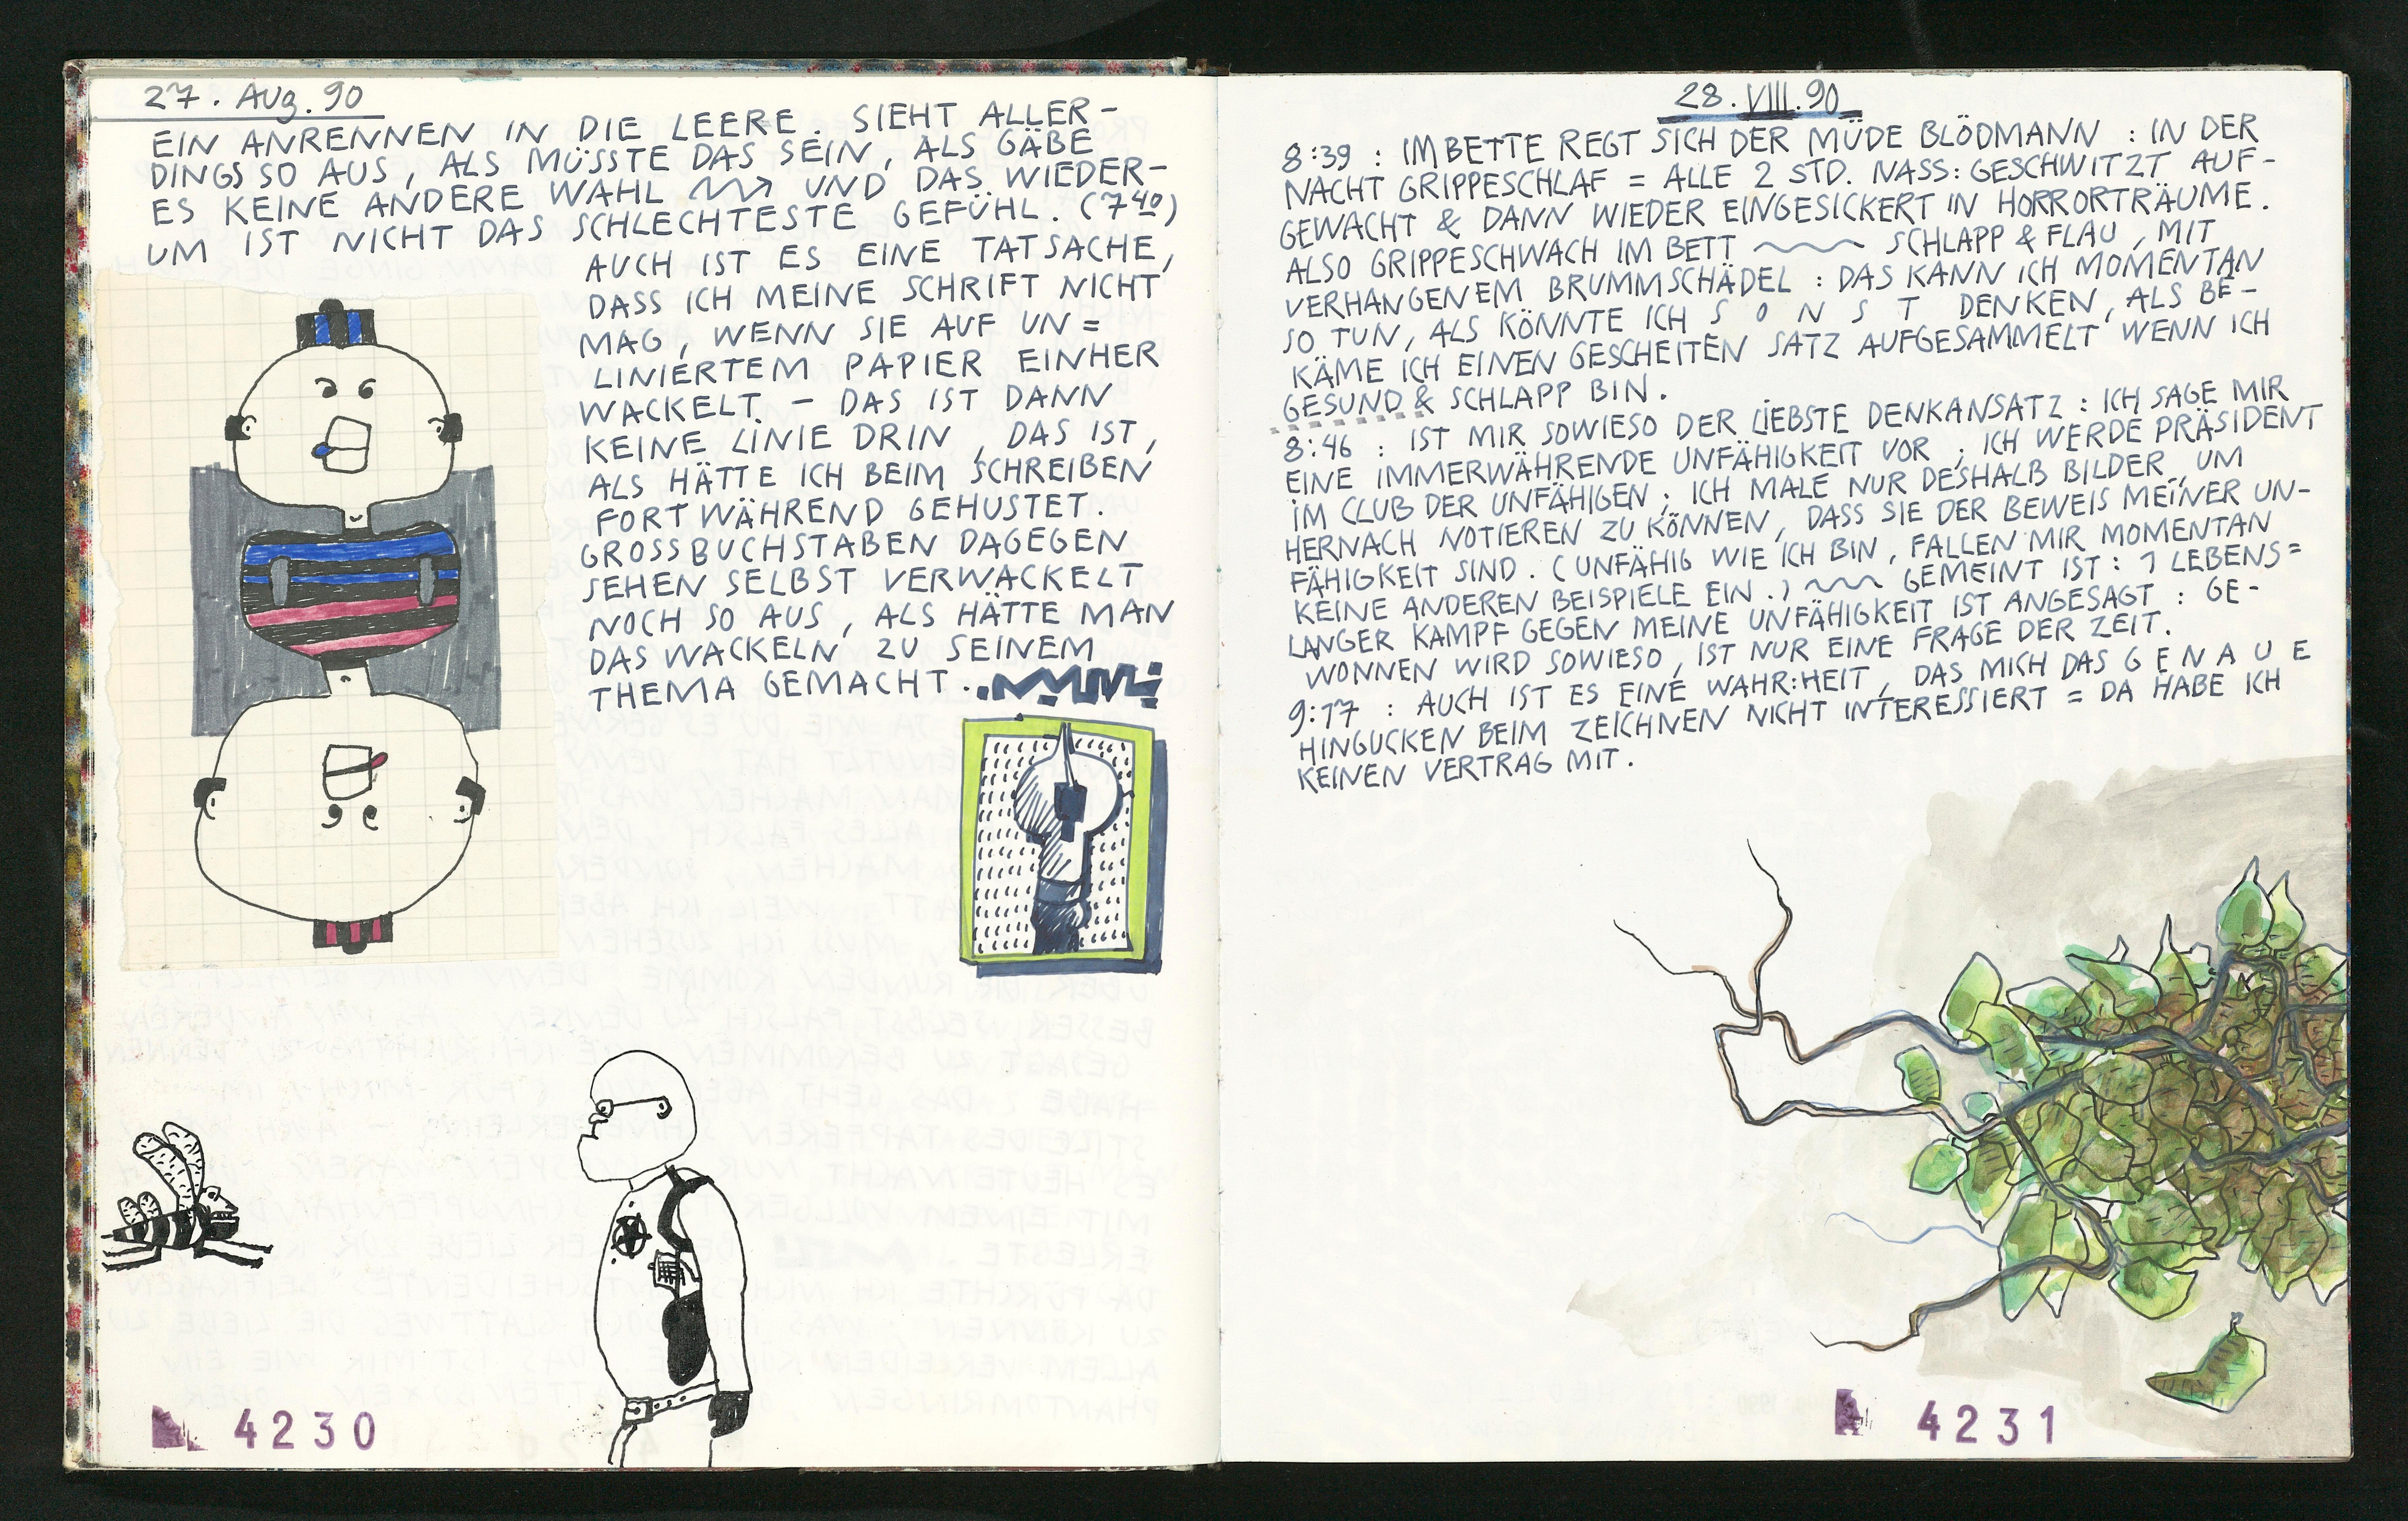 27. AUG. 90
EIN ANRENNEN IN DIE LEERE. SIEHT ALLER-
DINGS SO AUS, ALS MÜSSTE DAS SEIN, ALS GÄBE
ES KEINE ANDERE WAHL UND DAS WIEDER-
UM IST NICHT DAS SCHLECHTESTE GEFÜHL. (7 40)
AUCH IST ES EINE TATSACHE,
DASS ICH MEINE SCHRIFT NICHT
MAG, WENN SIE AUF UN=
LINIERTEM PAPIER EINHER
WACKELT - DAS IST DANN
KEINE LINIE DRIN, DAS IST,
ALS HÄTTE ICH BEIM SCHREIBEN
FORTWÄHREND GEHUSTET.
GROSSBUCHSTABEN DAGEGEN
SEHEN SELBST VERWACKELT
NOCH SO AUS, ALS HÄTTE MAN
DAS WACKELN ZU SEINEM
THEMA GEMACHT.
4230
28. VIII. 90
8:39 : IM BETTE REGT SICH DER MÜDE BLÖDMANN : IN DER
NACHT GRIPPESCHLAF = ALLE 2 STD. NASS: GESCHWITZT AUF-
GEWACHT & DANN WIEDER EINGESICKERT IN HORRORTRÄUME.
ALSO GRIPPESCHWACH IM BETT SCHLAPP & FLAU, MIT
VERHANGENEM BRUMMSCHÄDEL : DAS KANN ICH MOMENTAN
SO TUN, ALS KÖNNTE ICH S O N S T DENKEN, ALS BE-
KÄME ICH EINEN GESCHEITEN SATZ AUFGESAMMELT WENN ICH
GESUND & SCHLAPP BIN.
8:46 : IST MIR SOWIESO DER LIEBSTE DENKANSATZ : ICH SAGE MIR
EINE IMMERWÄHRENDE UNFÄHIGKEIT VOR ; ICH WERDE PRÄSIDENT
IM CLUB DER UNFÄHIGEN ; ICH MALE NUR DESHALB BILDER, UM
HERNACH NOTIEREN ZU KÖNNEN, DASS SIE DER BEWEIS MEINER UN-
FÄHIGKEIT SIND. (UNFÄHIG WIE ICH BIN, FALLEN MIR MOMENTAN
KEINE ANDEREN BEISPIELE EIN.) GEMEINT IST : 1 LEBENS=
LANGER KAMPF GEGEN MEINE UNFÄHIGKEIT IST ANGESAGT : GE-
WONNEN WIRD SOWIESO, IST NUR EINE FRAGE DER ZEIT.
9:17 : AUCH IST ES EINE WAHR:HEIT, DAS MICH DAS G E N A U E
HINGUCKEN BEIM ZEICHNEN NICHT INTERESSIERT = DA HABE ICH
KEINEN VERTRAG MIT.
4231